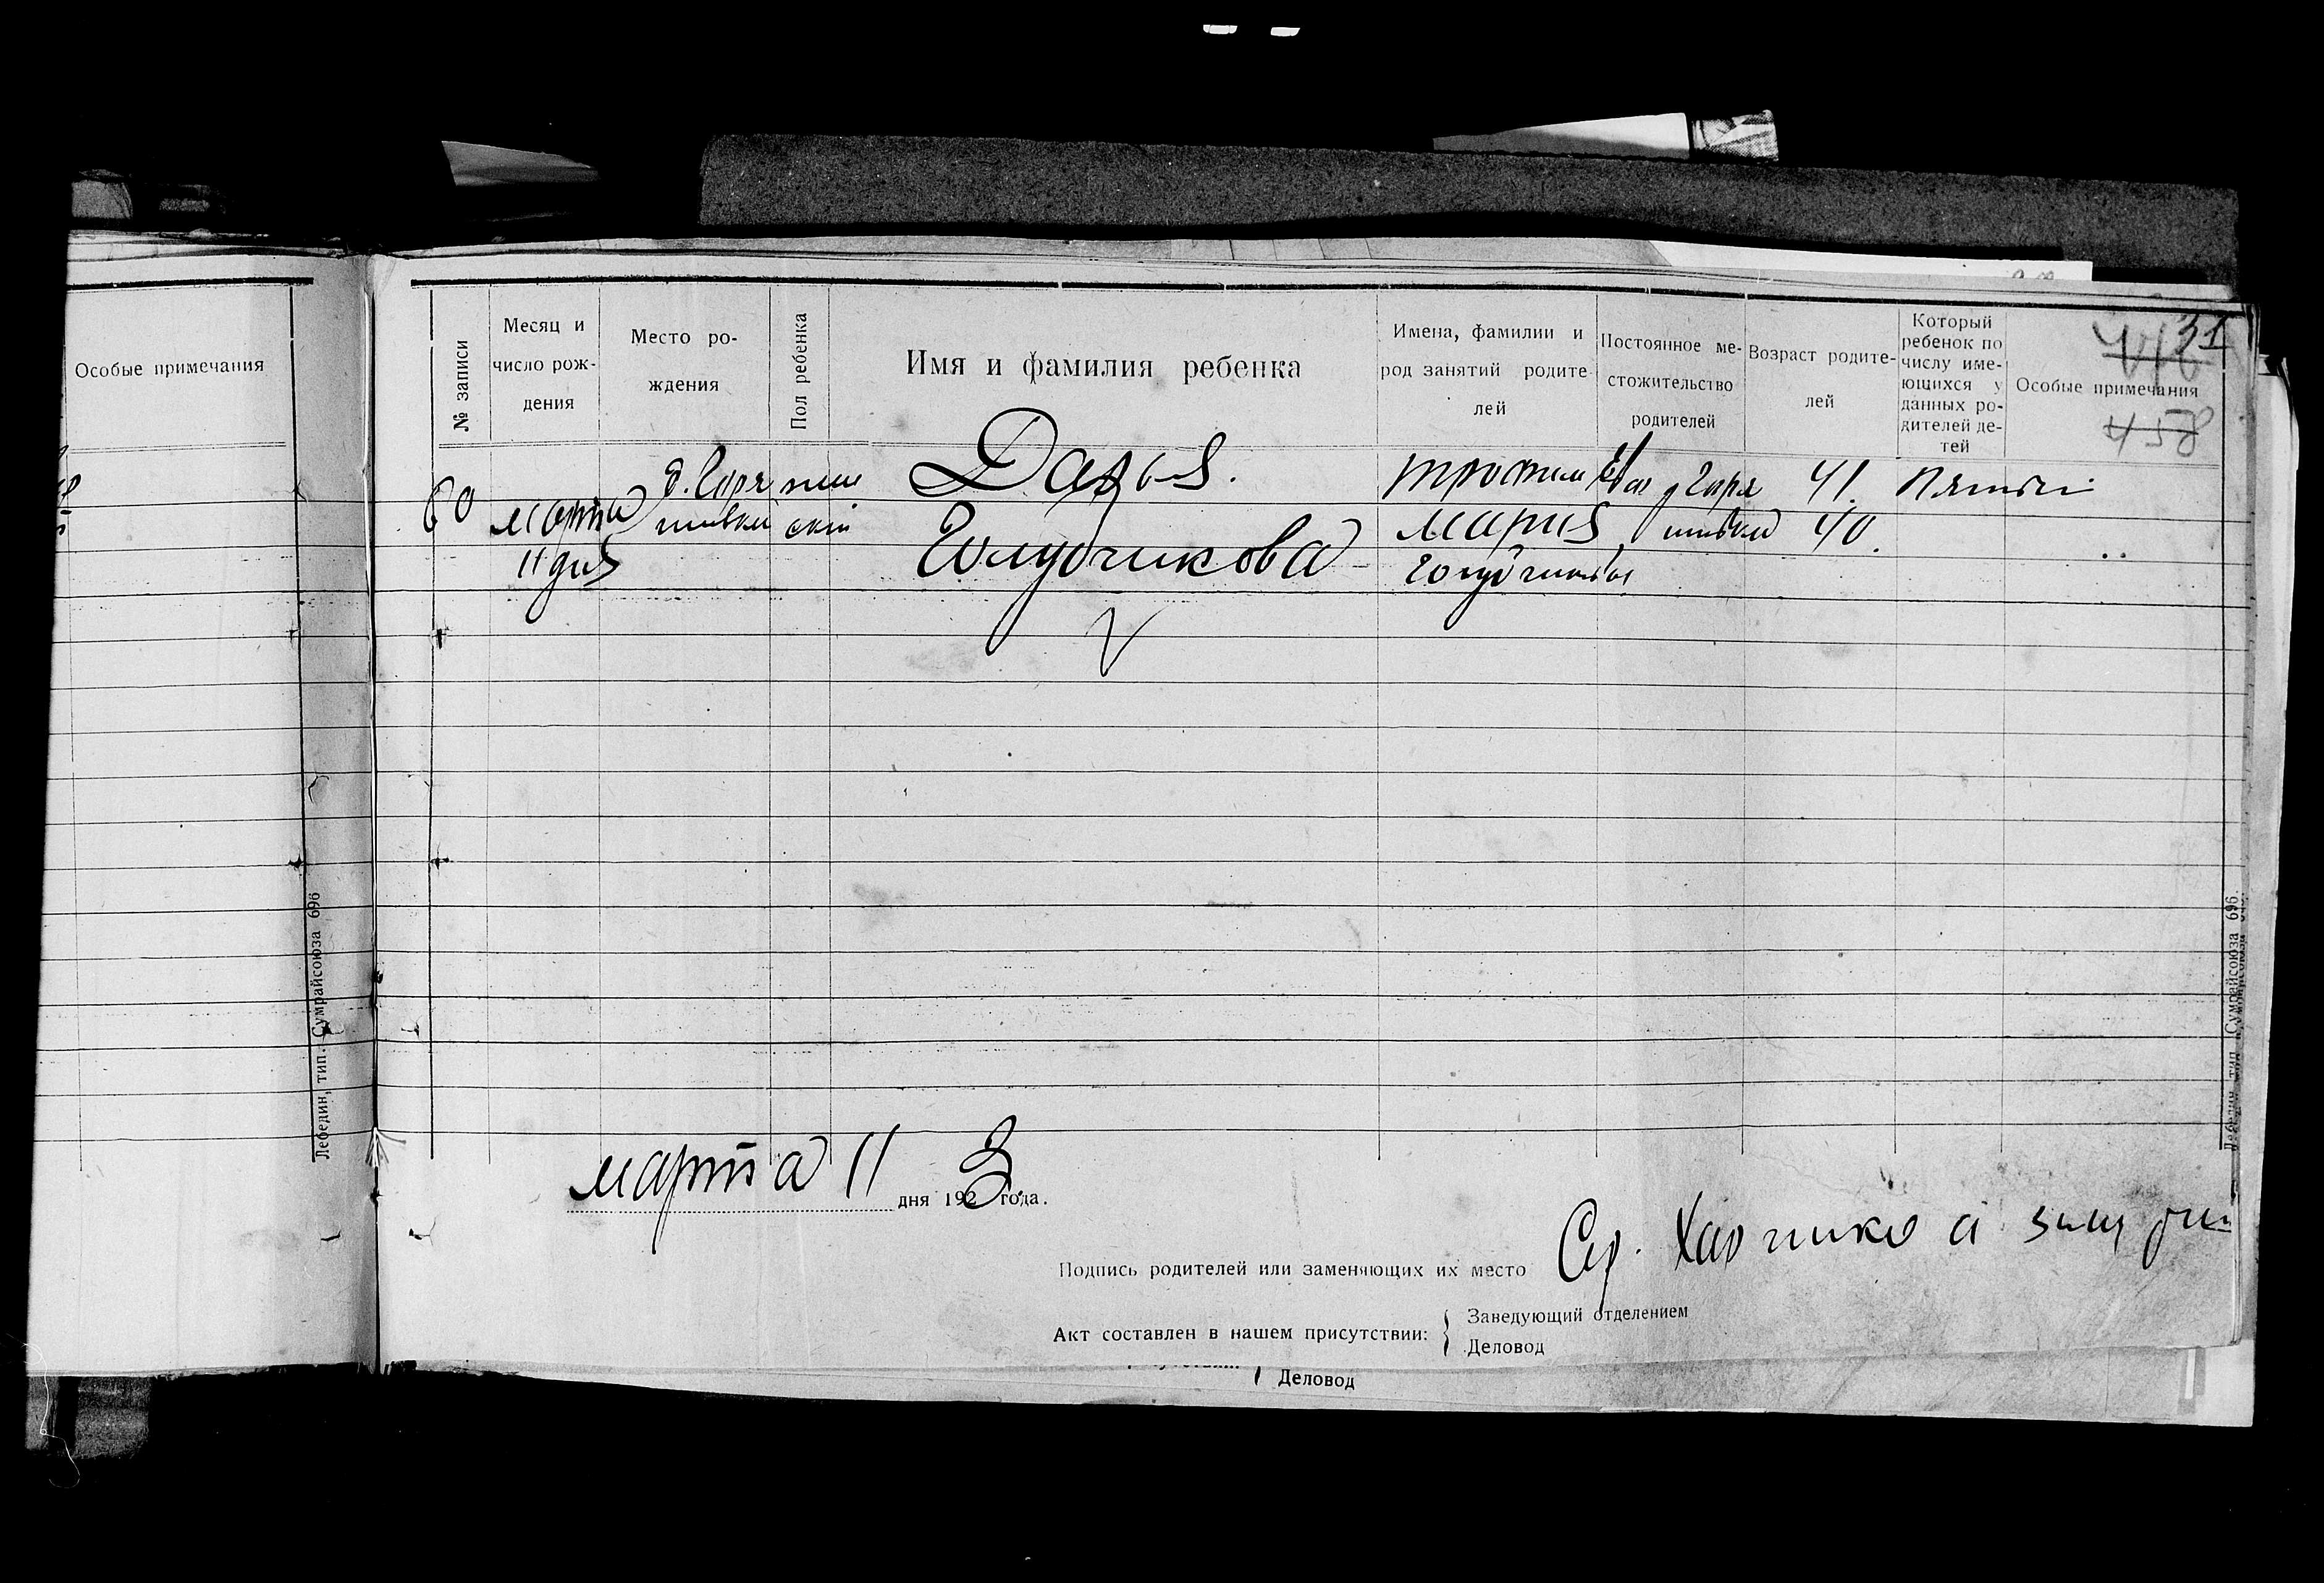 Особые примечания
Лебедин, тип. Сумрайсоюза 696
№ записи
Месяц и
число рож-
дения
Место ро-
ждения
Пол ребенка
Имя и фамилия ребенка
Имена, фамилии и
род занятий родите-
лей
Постоянное ме-
стожительство
родителей
Возраст родите-
лей
Который
ребенок по
числу име-
ющихся у
данных ро-
дителей де-
тей
31
Особые примечания
458
60
марта
11 дня
женскій
Дарья.
Голубчикова
Трофим
Мария
Голубчиковы
41.
40.
Пятый
марта 11 дня 1923 года.
Подпись родителей или заменяющих их место
Акт составлен в нашем присутствии:
Заведующий отделением
Деловод
Деловод
Лебедин, тип. Сумрайсоюза 696.